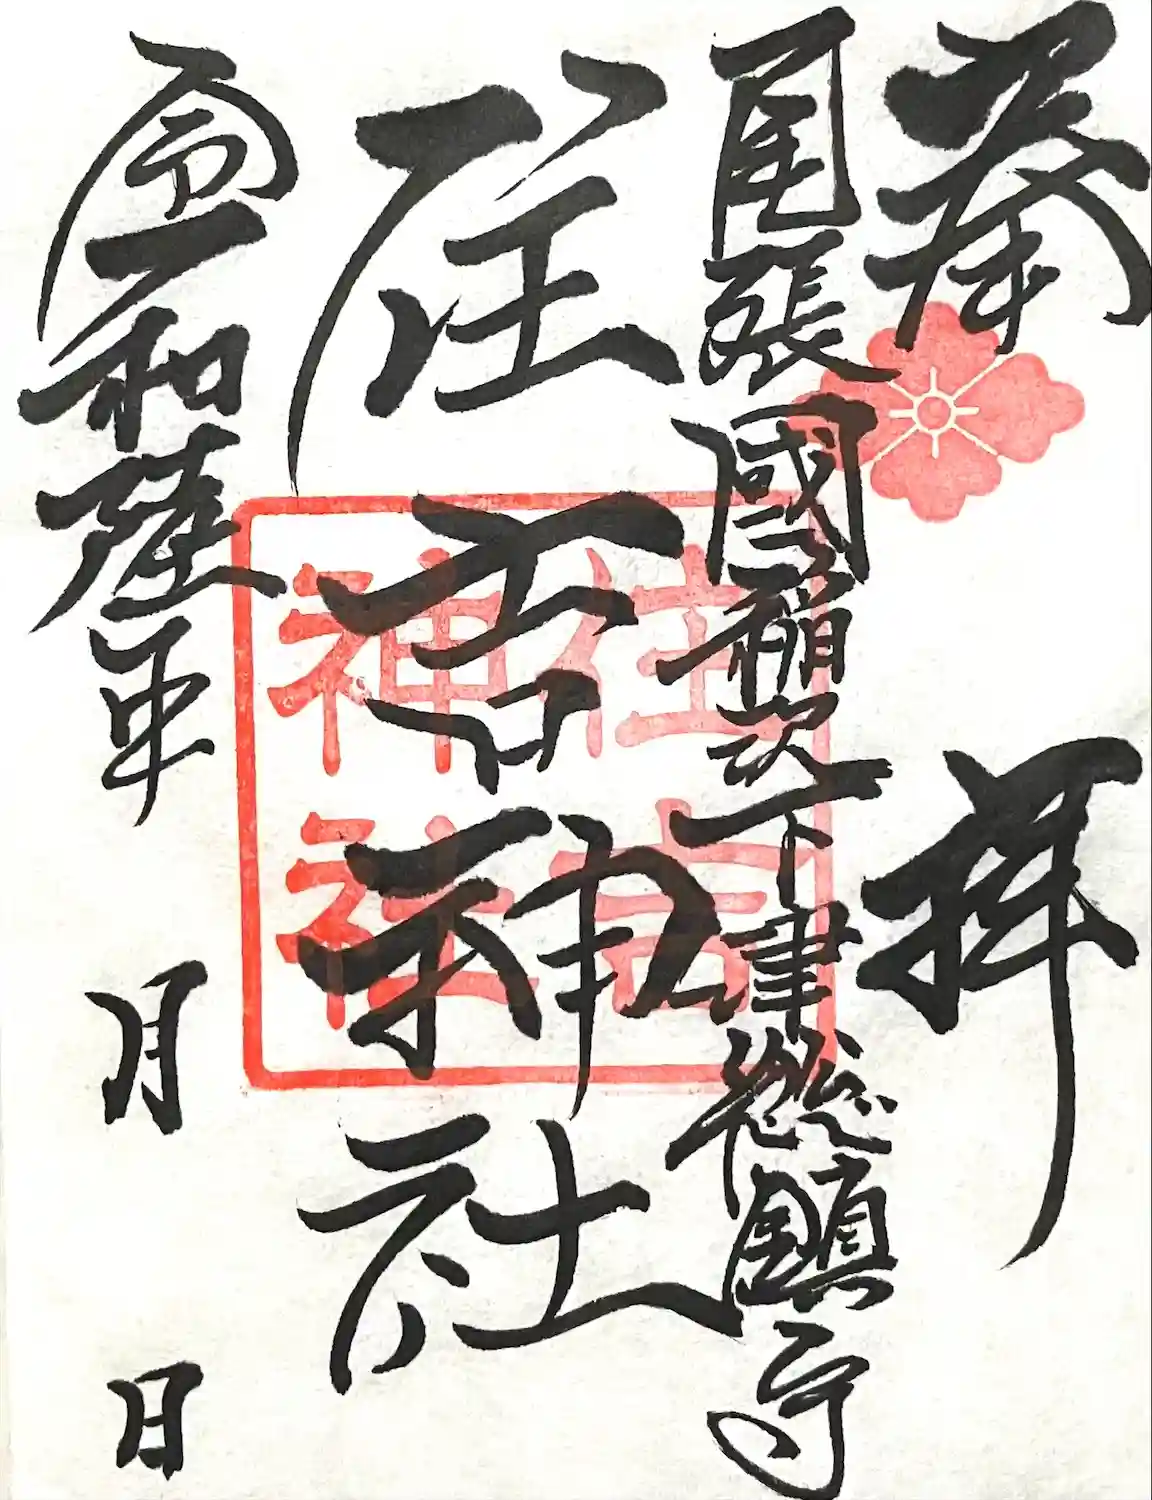 奉拝
尾張國稲沢下津總鎮守
住吉神社
令和陸年 月 日
住吉
神社